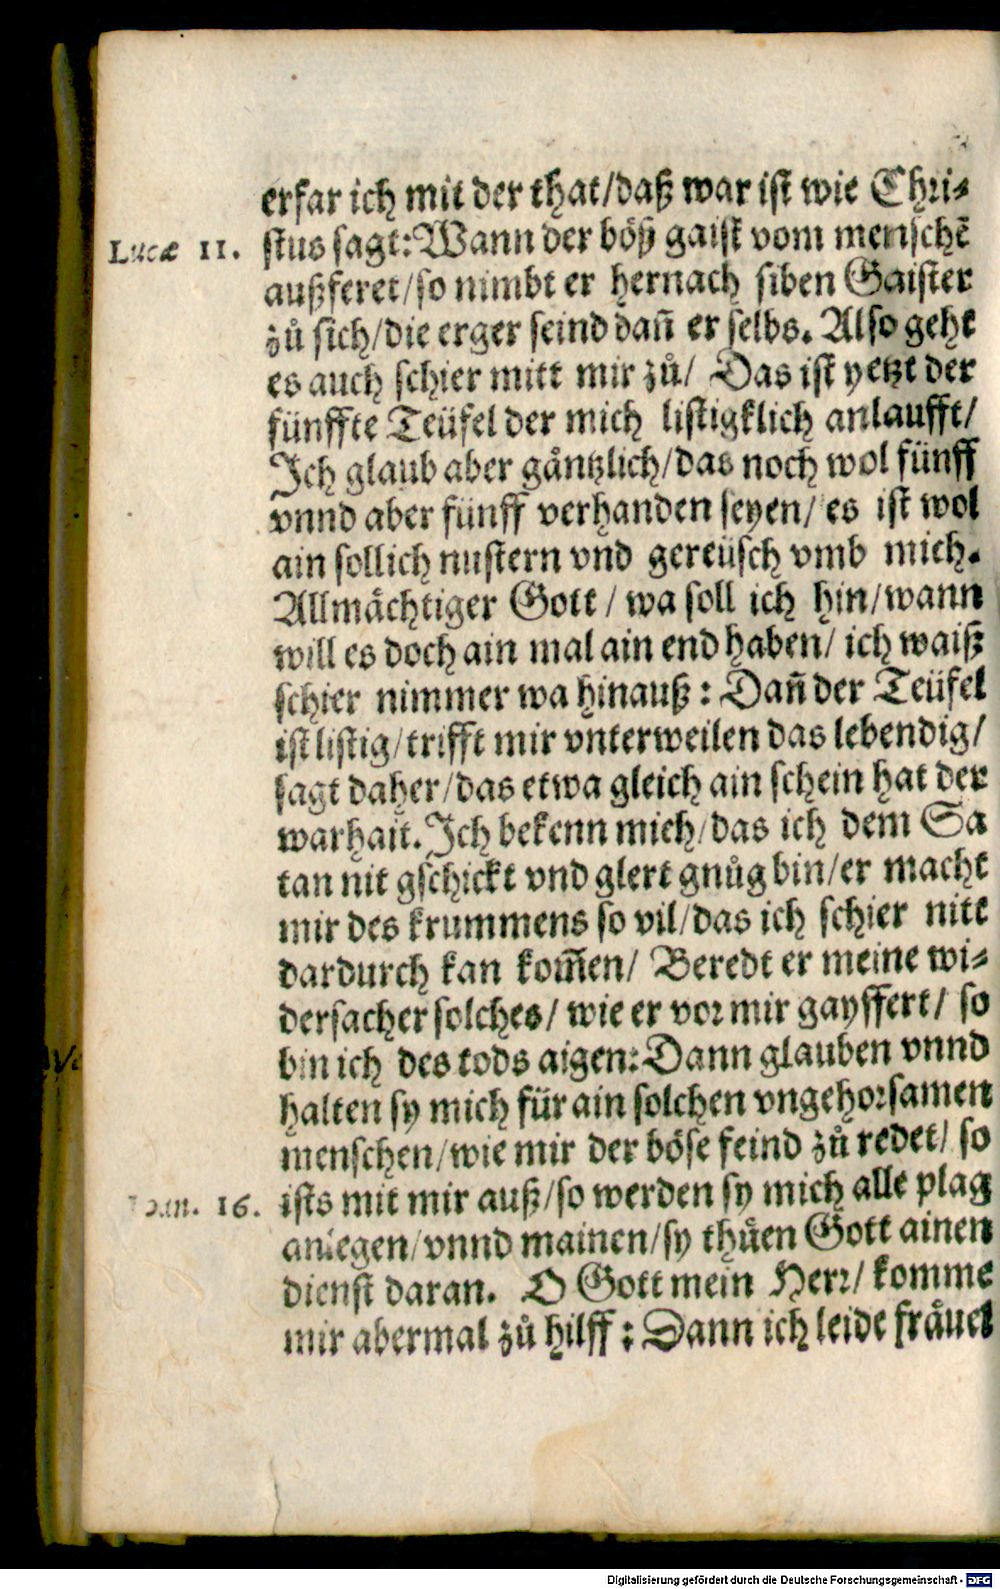 erfar ich mit der that/daß war ist wie Chri⸗
Lucæ 11. stus sagt: Wann der böß gaist vom menschẽ
außferet/so nimbt er hernach siben Gaister
zů sich/die erger seind dañ er selbs. Also geht
es auch schier mitt mir zů/ Das ist yetzt der
fünffte Teüfel der mich listigklich anlaufft/
Ich glaub aber gåntzlich/das noch wol fünff
vnnd aber fünff verhanden seyen/ es ist wol
ain sollich nustern vnd gereüsch vmb mich.
Allmåchtiger Gott / wa soll ich hin/wann
will es doch ain mal ain end haben/ ich waiß
schier nimmer wa hinauß : Dañ der Teüfel
ist listig/trifft mir vnterweilen das lebendig/
sagt daher/das etwa gleich ain schein hat der
warhait. Ich bekenn mich/das ich dem Sa
tan nit gschickt vnd glert gnůg bin/er macht
mir des krummens so vil/das ich schier nitt
dardurch kan kom̃en/ Beredt er meine wi⸗
dersacher solches/ wie er vor mir gayffert/ so
bin ich des tods aigen: Dann glauben vnnd
halten sy mich für ain solchen vngehorsamen
menschen/wie mir der böse feind zů redet/ so
Ioan. 16. ists mit mir auß/so werden sy mich alle plag
anlegen/vnnd mainen/sy thůen Gott ainen
dienst daran. O Gott mein Herr/ komme
mir abermal zů hilff : Dann ich leide fråuel
Digitalisierung gefördert durch die Deutsche Forschungsgemeinschaft - DFG